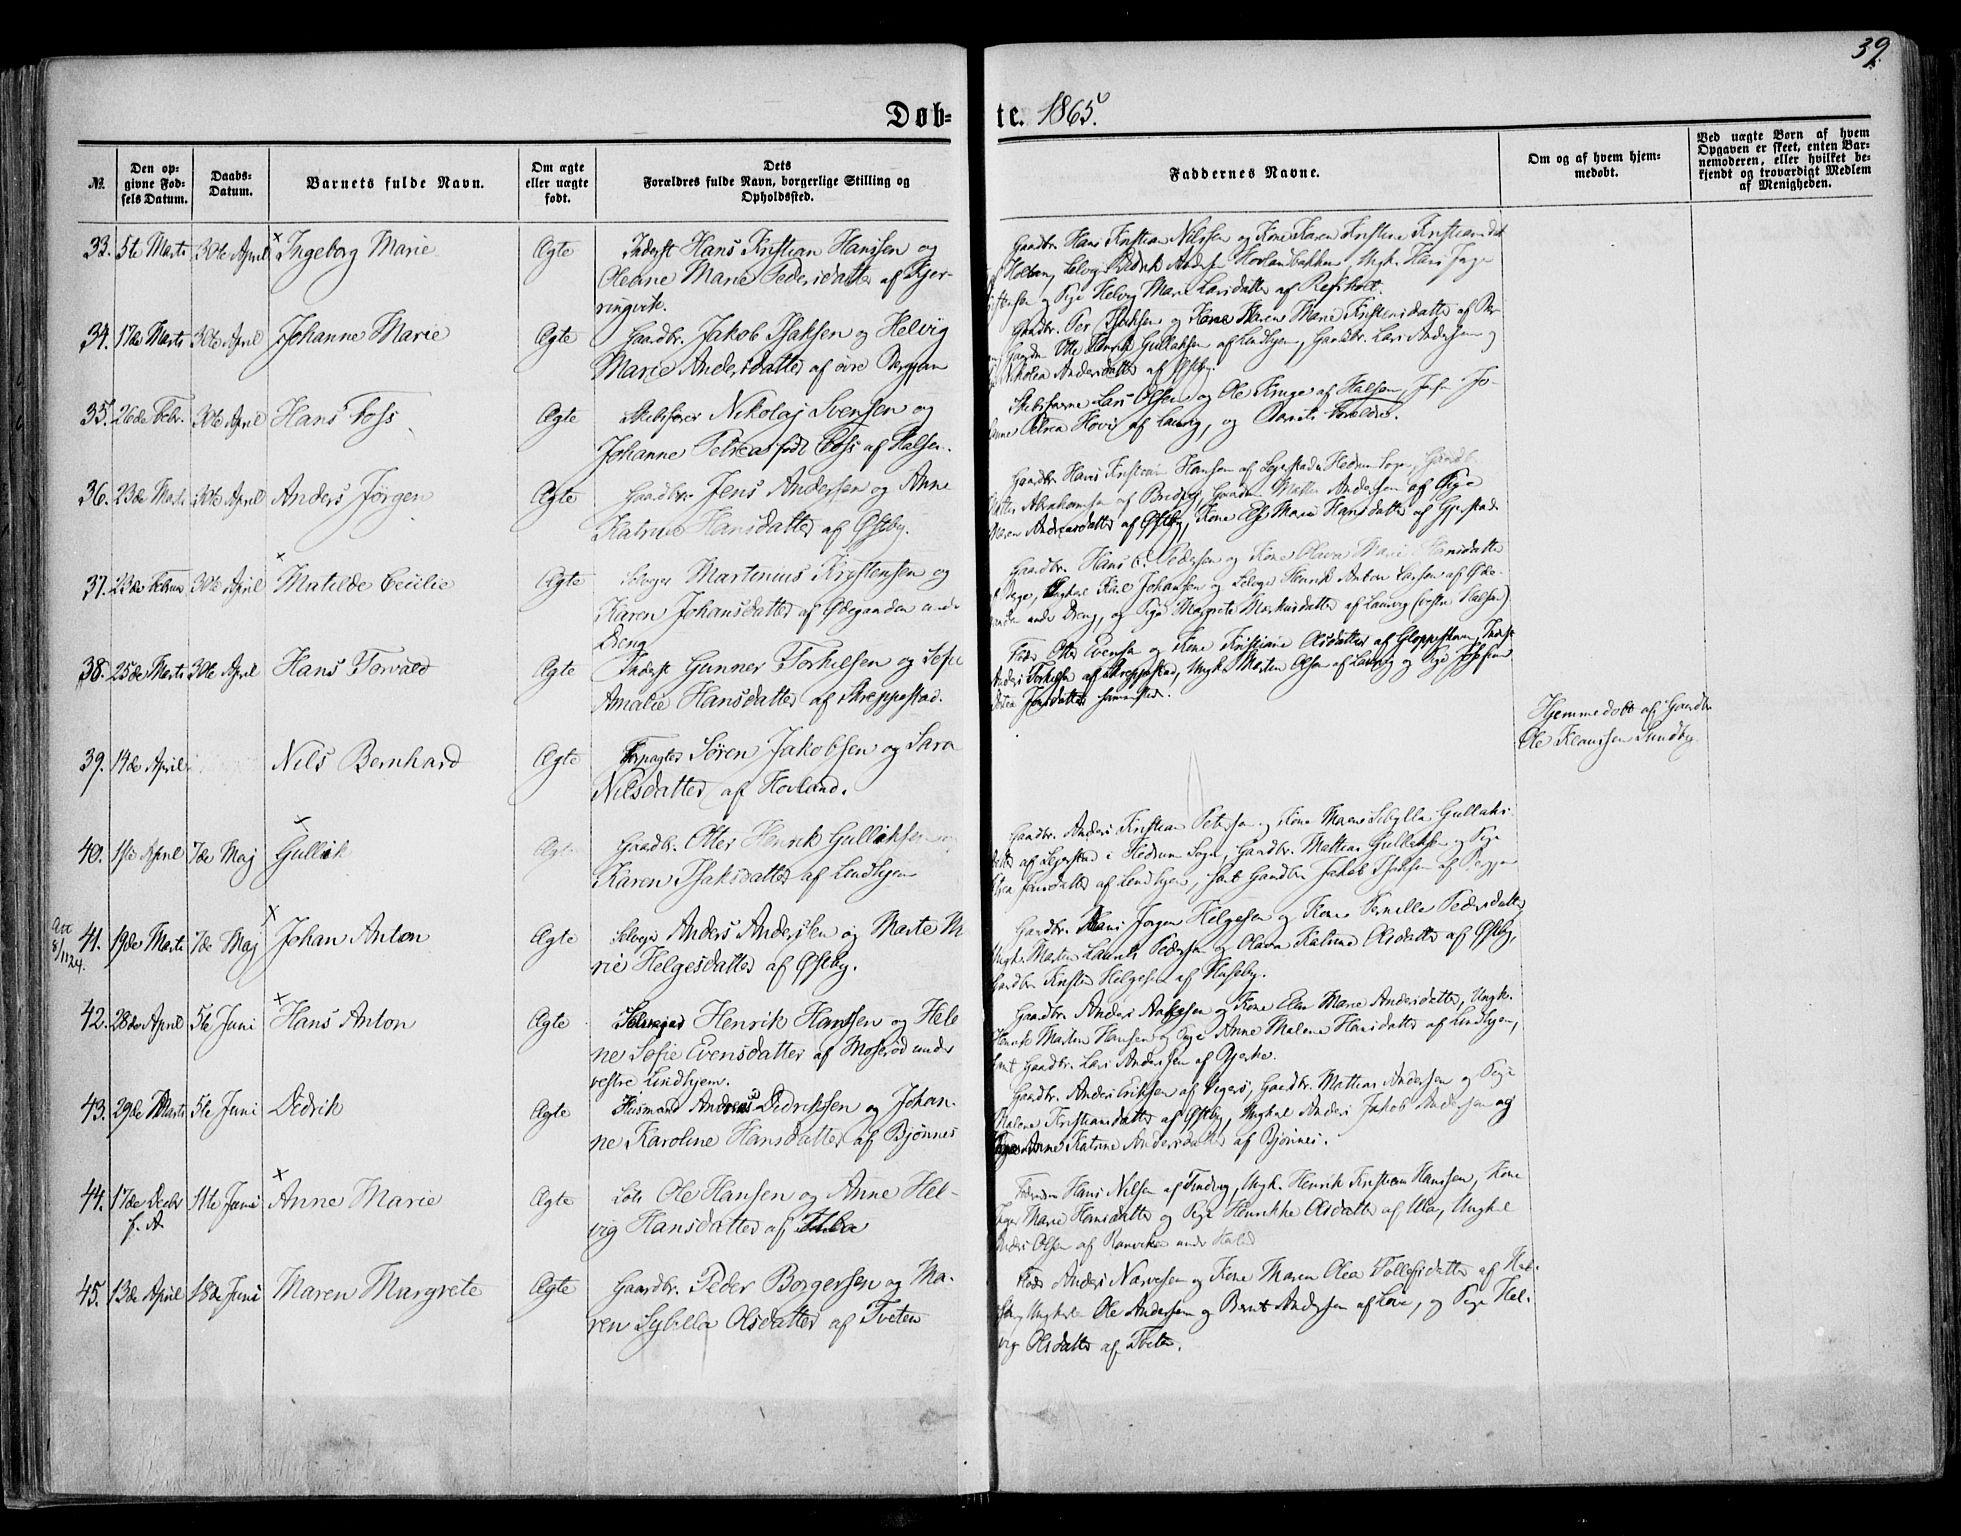 39.
Døb- te. 1865.
№.
Den op-
givne Fød-
sels Datum.
Daabs-
Datum.
Barnets fulde Navn.
Om ægte
eller uægte
født.
Dets
Forældres fulde Navn, borgerlige Stilling og
Opholdssted.
Faddernes Navne.
Om og af hvem hjem-
medøbt.
Ved uægte Børn af hvem
Opgaven er skeet, enten Bar-
nemoderen, eller hvilket be-
kjendt og troværdigt Medlem
af Menigheden.
33. 5te Marts 30te April Ingeborg Marie Ægte Inderst Hans Kristian Hanssen og
Oleane Marie Pedersdatter af Kjer-
ringvik.
Gaardbr. Hans Kristian Nilssen og Kone Karen Kristine Kristiansdat
Holtan, Selveier Didrik Andersen Hovlandbakken, Ungk. Hans Inge
og Pige Helvig Marie Larsdatter af Refsholt.
34. 17de Marts 30te April Johanne Marie Ægte Gaardbr. Jakob Isaksen og Helvig
Marie Andersdatter af øvre Bergan
Gaardbr. Per Isaksen og Kone Karen Marie Kristensdatter af Ber
Gaardm Otte Henrik Gulliksen af Lindhjem, Gaardbr. Lars Andersen og
Nikolea Andersdatter af Østby.
35. 26de Febr. 30te April Hans Foss Ægte Skibsfører Nikolaj Svensen og
Johanne Petrea født Foss af Halsen.
Skibsførerne Lars Olsen og Ole Kruge af Halsen, Jo-
hanne Petrea Hovi af Laurvig, og Barnets Forældre.
36. 23de Marts 30te April Anders Jørgen Ægte Gaardbr. Jens Andersen og Anne
Katrine Hansdatter af Østby.
Gaardbr. Hans Kristian Hansen af Lejerstad i Hedrum Sogn, Gaardb.
Abrahamsen af Gaardm Matter Andersen af Pige
Maren Andreasdatter af Østby, Kone Else Marie Hansdatter af Gjerstad.
37. 23de Februar 30te April Matilde Cecilie Ægte Selveger Martinius Kristensen og
Karen Johansdatter af Ødegaarden under
Breng
Gaardbr. Hans C. Pedersen og Kone Olava Marie Hansdatter
Vege, Ungkarl Karl Johansen og Selveger Henrik Anton Larsen af Øde-
gaarden under Breng, og Pige Margrete Markusdatter af Laurvig (vestre Halsen)
38. 25de Marts 30te April Hans Torvald Ægte Inderst Gunner Torkelsen og Sofie
Amalie Hansdatter af Skreppestad.
Føder Otter Evensen og Kone Kristiane Olsdatter af Gloppestuen, Inderst
Anders Torkelsen af Skreppestad, Ungk. Morten Olsen af Laurvig og Pige Josefine
Jensdatter sammesteds.
39. 14de April Nils Bernhard Ægte Forpagter Søren Jakobsen og Sara
Nilsdatter af Hovland.
Hjemmedøbt af Gaardbr
Ole Klaussen Sundby.
40. 1ste April 7de Maj Gullik Ægte Gaardbr. Otter Henrik Gulliksen og
Karen Isaksdatter af Lindhjem
Gaardbr. Anders Kristian Petersen og Kone Maren Sibylla Gulliks-
datter af Lejerstad i Hedrum Sogn, Gaardbr. Mathias Gulliksen og Pige
Jansdatter af Lindhjem, samt Gaardbr. Jakob Isaksen af Bergan
Att
8/11 24.
41. 19de Marts 7de Maj Johan Anton Ægte Selveger Anders Andersen og Marte M
rie Helgesdatter af Østby.
Gaardbr. Hans Jørgen Helgesen og Kone Pernille Pedersdatter,
Ungk. Morten Laurits Pedersen og Olava Katrine Olsdatter af Østby,
Gaardbr Kristen Helgesen af Huseby.
42. 28de April 5te Juni Hans Anton Ægte Selveger Henrik Hanssen og Hele
ne Sofie Evensdatter af Moserød under
vestre Lindhjem.
Gaardbr. Anders Aslesen og Kone Elen Marie Andersdatter, Ungk.
Henrik Martin Hansen og Pige Anne Malene Hansdatter af Lindhjem,
samt Gaardbr. Lars Anderssen af Bjerke.
43. 29de Marts 5te Juni Didrik Ægte Husmand Andreas Didrikssen og Johan-
ne Karoline Hansdatter af Bjønnes
Gaardbr. Anders Eriksen af Vegers, Gaardbr. Mathias Andersen og Pige
Malene Kristiansdatter af Østby, Ungkarl Anders Jakob Andersen og
Pige Anne Katrine Andersdatter af Bjønnes.
44. 17de Decbr
f. A 11te Juni Anne Marie Ægte Lods Ole Hansen og Anne Hel-
vig Hansdatter af Ula
Hans Nilsen af Tindvig, Ungk. Henrik Kristian Hanssen, Kone
Inger Marie Hansdatter og Pige Henrikke Olsdatter af Ula, Ungkarl
Anders Olsen af Ranviken under
45. 13de April 18de Juni Maren Margrete Ægte Gaardbr. Peder Borgersen og Ma-
ren Sybilla Olsdatter af Tveten
Føder Anders Narvesen og Kone Maren Olea Tollefsdatter af Hal-
sen, Ungkarle Ole Andersen og Bernt Andersen af Love, og Pige Hel-
vig Olsdatter af Tveten.